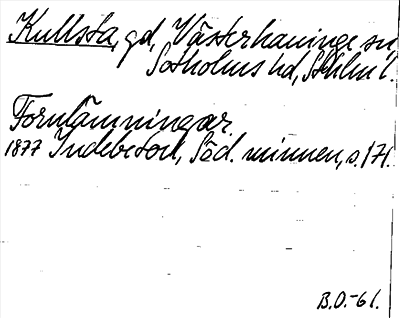 Kullsta, gd, Västerhaninge sn,
Sotholms hd, Sthlm l.
Fornlämningar.
1877 Indebetou, Söd. minnen, s. 171.
B.O.-61.